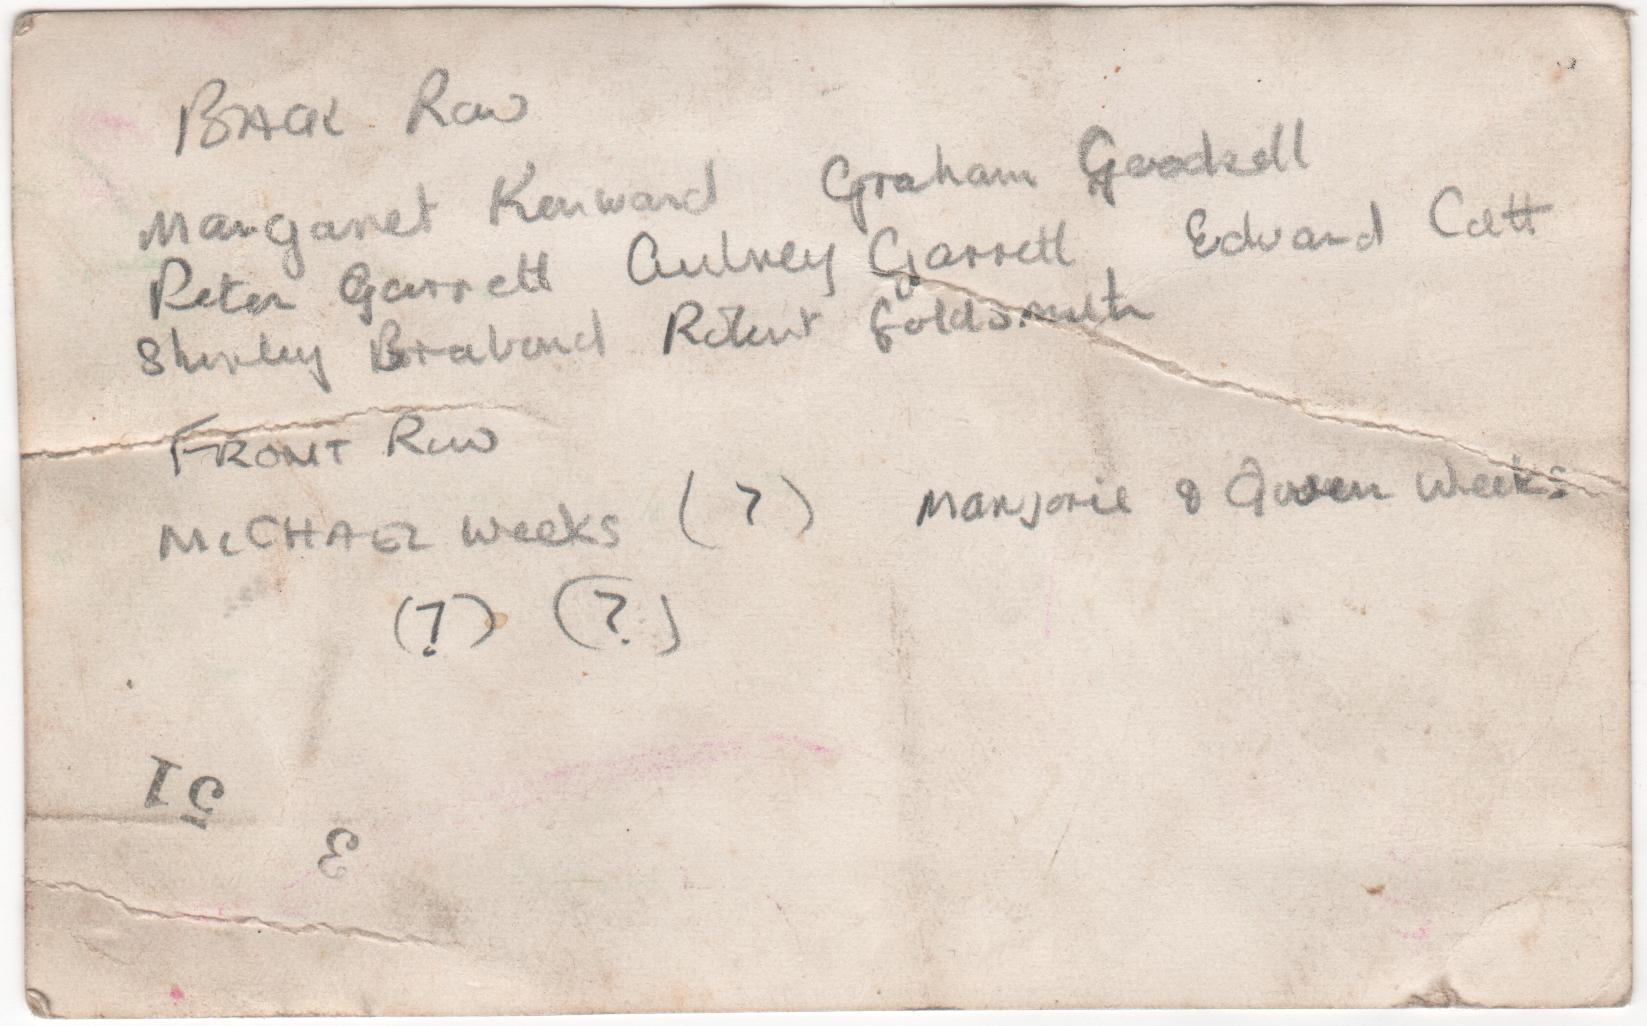 BACK Row
Margaret Kenward Graham Goodsell
Peter Garrett Aubrey Garrett Edward Catt
Shirley Braband Robert Goldsmith
FRONT Row
MiCHAEL Weeks (?) Marjorie & Gwen Weeks
(?) (?)
51
3